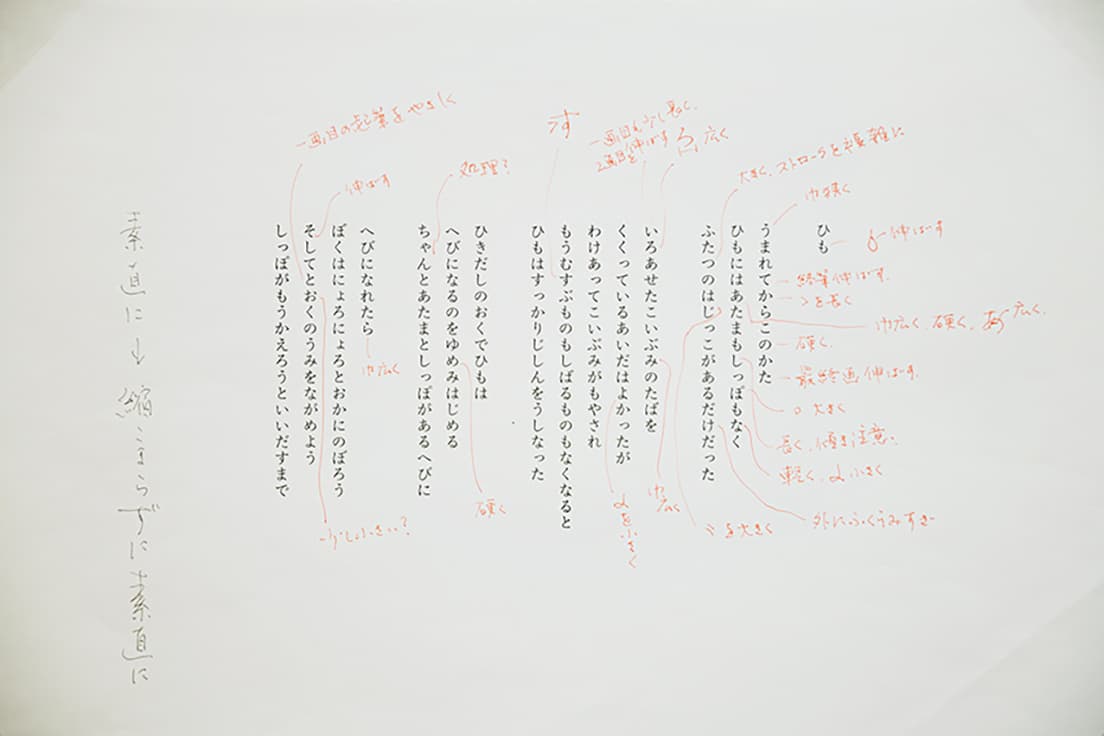 ひも
うまれてからこのかた
ひもにはあたまもしっぽもなく
ふたつのはじっこがあるだけだった
いろあせたこいぶみのたばを
くくっているあいだはよかったが
わけあってこいぶみがもやされ
もうむすぶものもしばるものもなくなると
ひもはすっかりじしんをうしなった
ひきだしのおくでひもは
へびになるのをゆめみはじめる
ちゃんとあたまとしっぽがあるへびに
へびになれたら
ぼくはにょろにょろとおかにのぼろう
そしてとおくのうみをながめよう
しっぽがもうかえろうといいだすまで
伸ばす
巾狭く
大きく、ストロークを複雑に
広く
一画目も少し長く、
2画目を伸ばす
す
処理?
伸ばす
一画目の起筆をやさしく
終筆伸ばす。
を長く
巾広く、硬く、あ 広く、
硬く、
最終画伸ばす。
大きく
長く、傾き注意。
軽く、小さく
外にふくらみすぎ
を大きく
巾広く
を小さく
硬く
巾広く
少し小さい?
素直に→縮こまらずに素直に